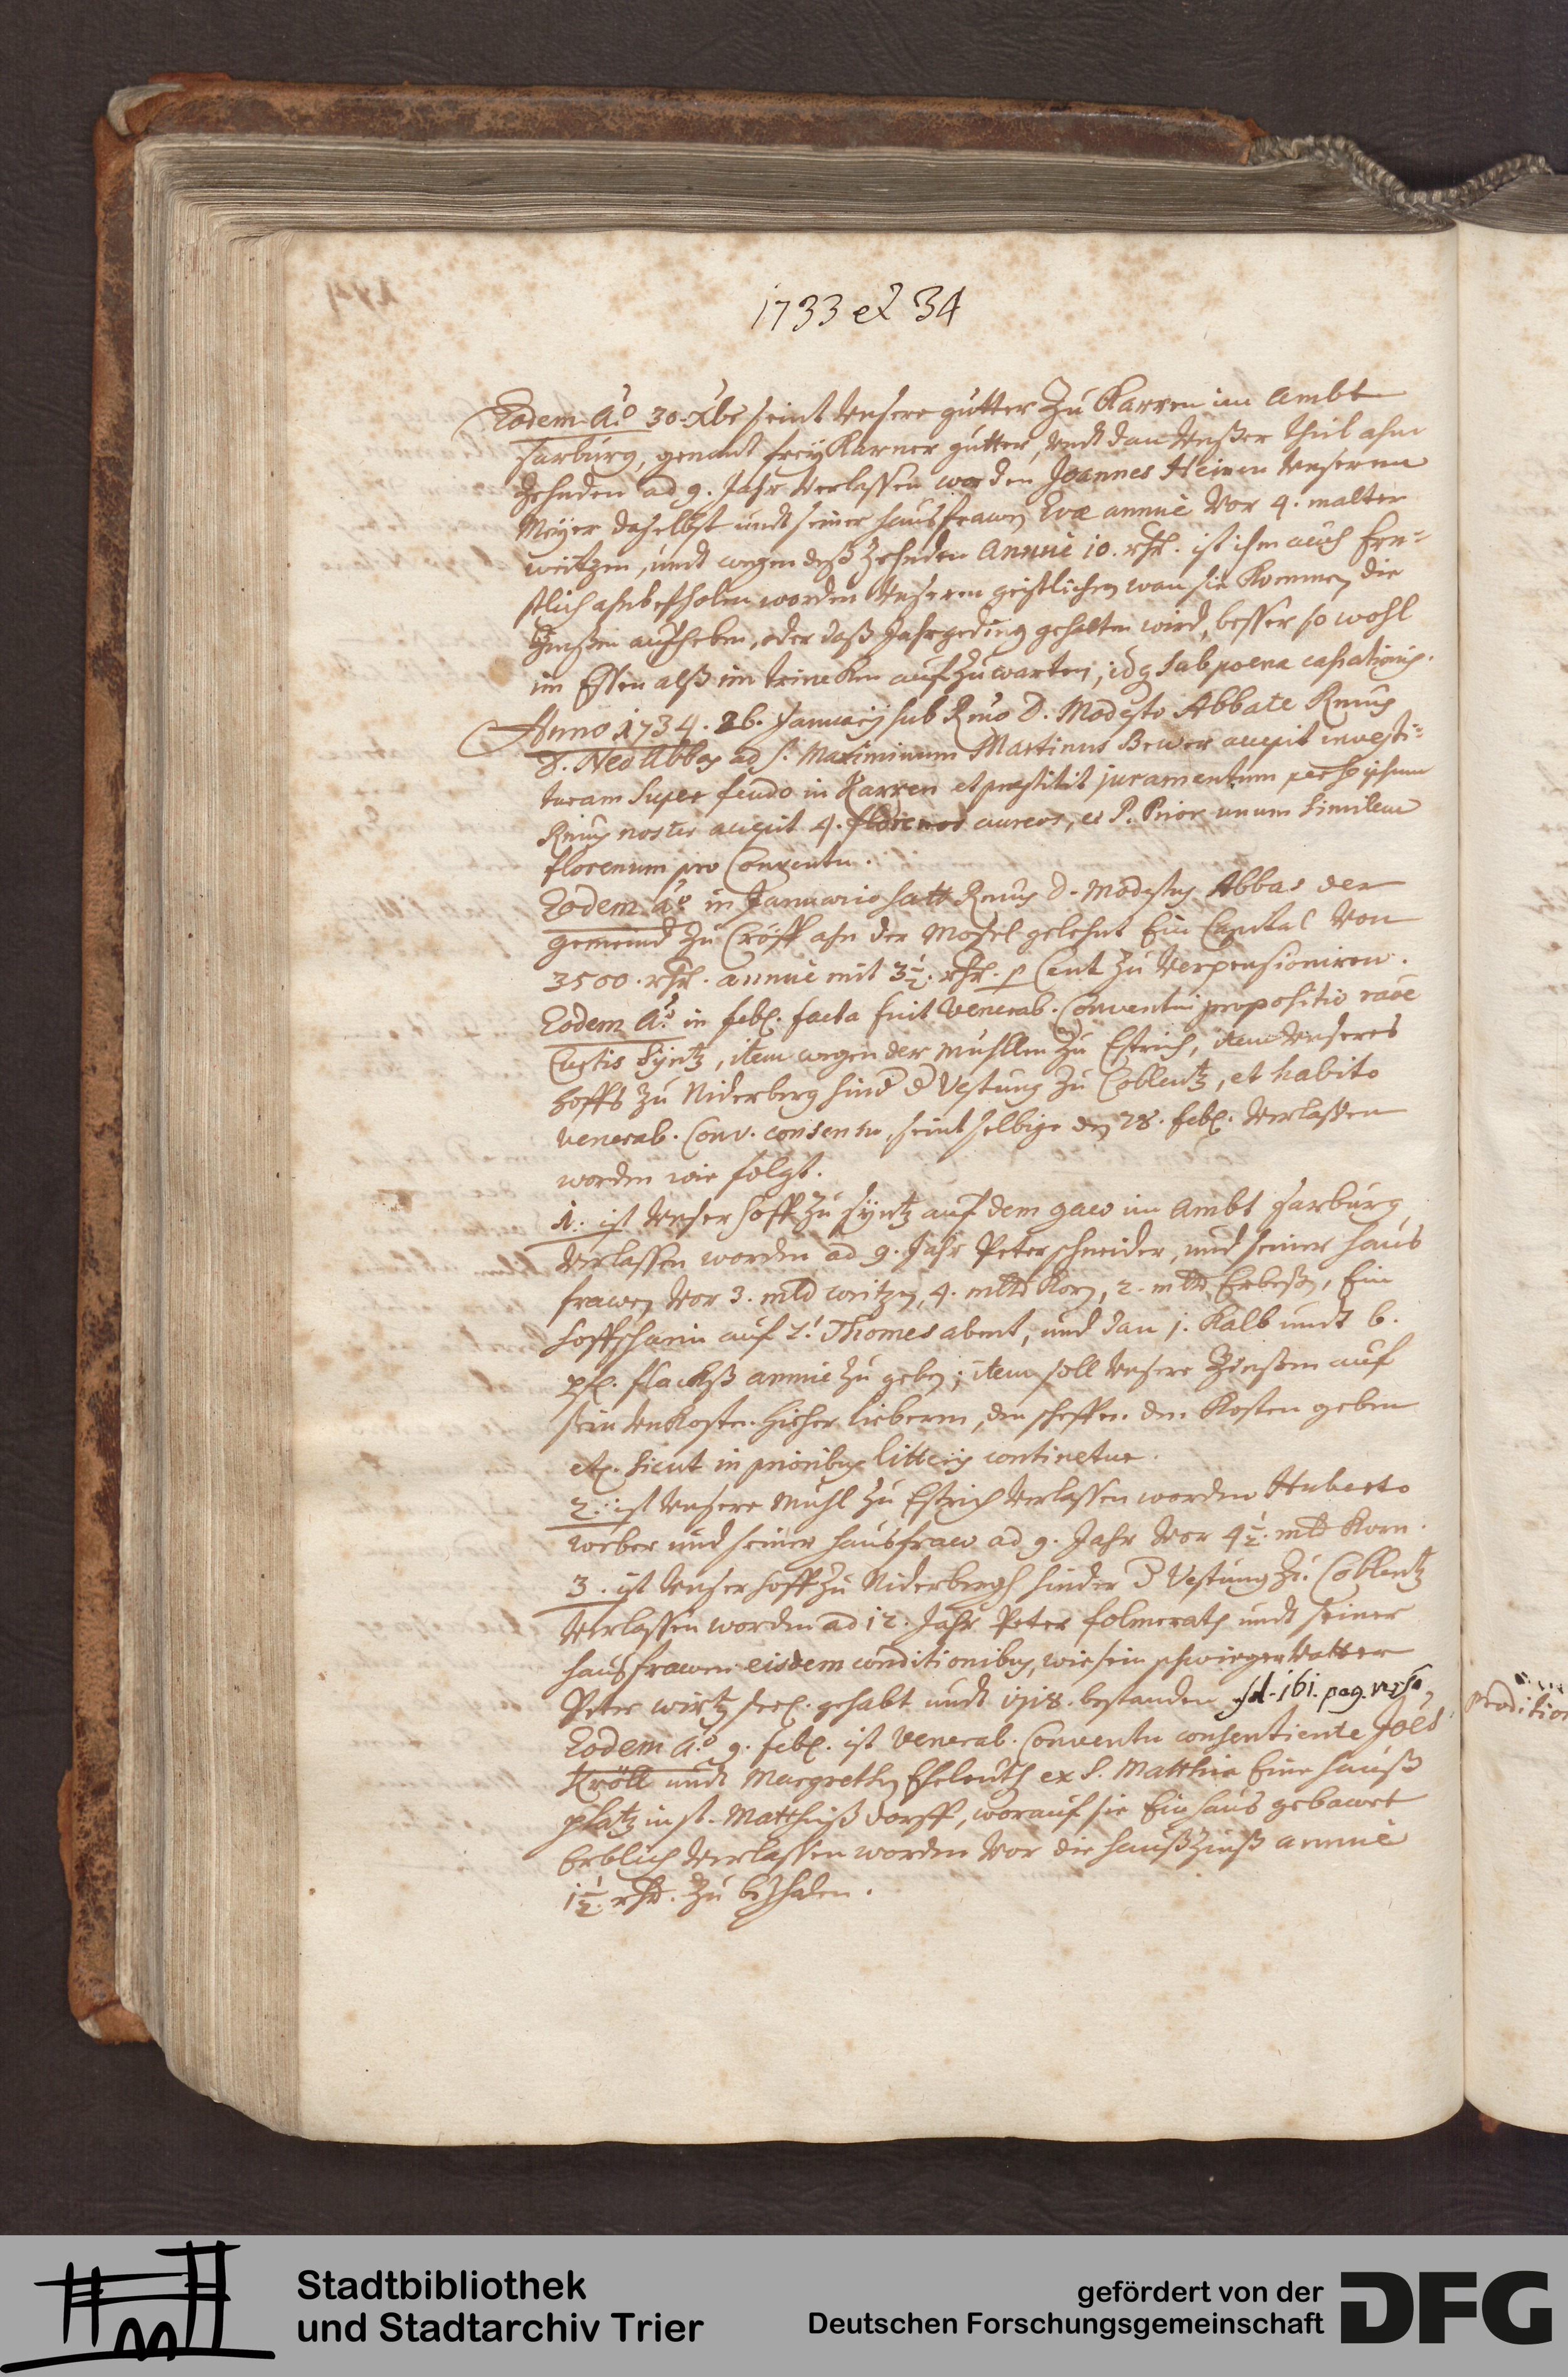 1733 et 34
Eodem Aō 30. Xbr seint unsere gütter zu Karren im Ambt
Sarburg, genant frey Karner gütter, undt dan unßer theil ahm
Zehnden ad 9. Jahr verlassen worden Joannes Heinen unserem
Meyer daselbst undt seiner hausfrawen Evæ annuè vor 4. malter
weitzen, undt wegen deß Zehnden annuè 10. rthlr. ist ihm auch Ern=
stlich ahnbefholen worden unseren geistlichen wan sie kommen, die
Zinßen aufheben, oder daß Jahrgeding gehalten wird, besser so wohl
im Essen alß im trincken aufzuwarten; idq sub poena cassationis.
Anno 1734. 26. Januarij sub Rmo D. Modesto Abbate Rmus
D. Neo Abbas ad S. Maximinum Martinus Bewer accepit investi=
turam super feudo in Karren et præstitit juramentum per se ipsum
Rmus noster accepit 4. florenos aureos, et P. Prior unum similem
florenum pro Conventu.
Eodem aō in Januario hatt Rmus D. Modestus Abbas der
gemeind zu Cröff ahn der Mosel gelehnt Ein Capital von
3500. rthlr. annuè mit 3½. rthlr. p Cent zu verpensioniren.
Eodem Aō in feb. facta fuit Venerab. Conventui propositio raōe
Curtis Syntz, item wegen der Muhllen zu Estrich, item unseres
hoffs zu Niderberg hind d Vestung zu Coblentz, et habito
venerab. Conv. consensu, seint selbige den 28. feb. verlassen
worden wie folgt.
1. ist unser hoff zu Syntz auf dem gaw im Ambt Sarburg
verlassen worden ad 9. Jahr Peter schneider, und seiner haus
frawen vor 3. mltd weitzen, 4. mltd Korn, 2. mltd Erbeßen, Ein
hoffschwein auf St. Thomes abent, und dan 1. Kalb undt 6.
pf. flachß annuè zu geben; item soll unsere Zinßen auf
sein unkosten hieher lieberen, den scheffen den Kosten geben
etc. sicut in prioribus litteris continetur.
2. ist unsere Muhl zu Estrich verlassen worden Huberto
weber und seiner hausfraw ad 9. Jahr vor 4½. mltd Korn.
3. ist unser hoff zu Niderbergh hinder d Vestung zu Coblentz
verlassen worden ad 12. Jahr Peter folmerath undt seiner
hausfrawen eisdem conditionibus, wie sein schwiegervatter
Peter wirtz seel. gehabt undt 1718. bestanden. ibi. pag. versa
Eodem Aō 9. feb. ist Venerab. Conventu consentiente Joēs
Kröll undt Margrethen Eheleuth ex S. Matthia Eine hauß
platz in st. Matthiß dorff, worauf sie Ein haus gebawet
Erblich verlassen worden vor die haußzinß annuè
1½. rthlr. zu bezahlen.
Stadtbibliothek
und Stadtarchiv Trier
gefördert von der
Deutschen Forschungsgemeinschaft
DFG